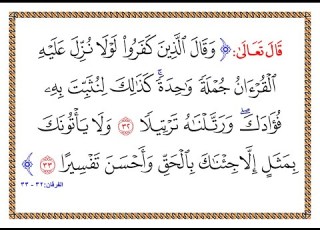 قَالَ تَعَالَىٰ: ﴿ وَقَالَ ٱلَّذِينَ كَفَرُوا۟ لَوْلَا نُزِّلَ عَلَيْهِ
ٱلْقُرْءَانُ جُمْلَةً وَٰحِدَةً ۚ كَذَٰلِكَ لِنُثَبِّتَ بِهِۦ
فُؤَادَكَ ۖ وَرَتَّلْنَـٰهُ تَرْتِيلًا ٣٢ وَلَا يَأْتُونَكَ
بِمَثَلٍ إِلَّا جِئْنَـٰكَ بِٱلْحَقِّ وَأَحْسَنَ تَفْسِيرًا ٣٣ ﴾
الفرقان: ٣٢ - ٣٣